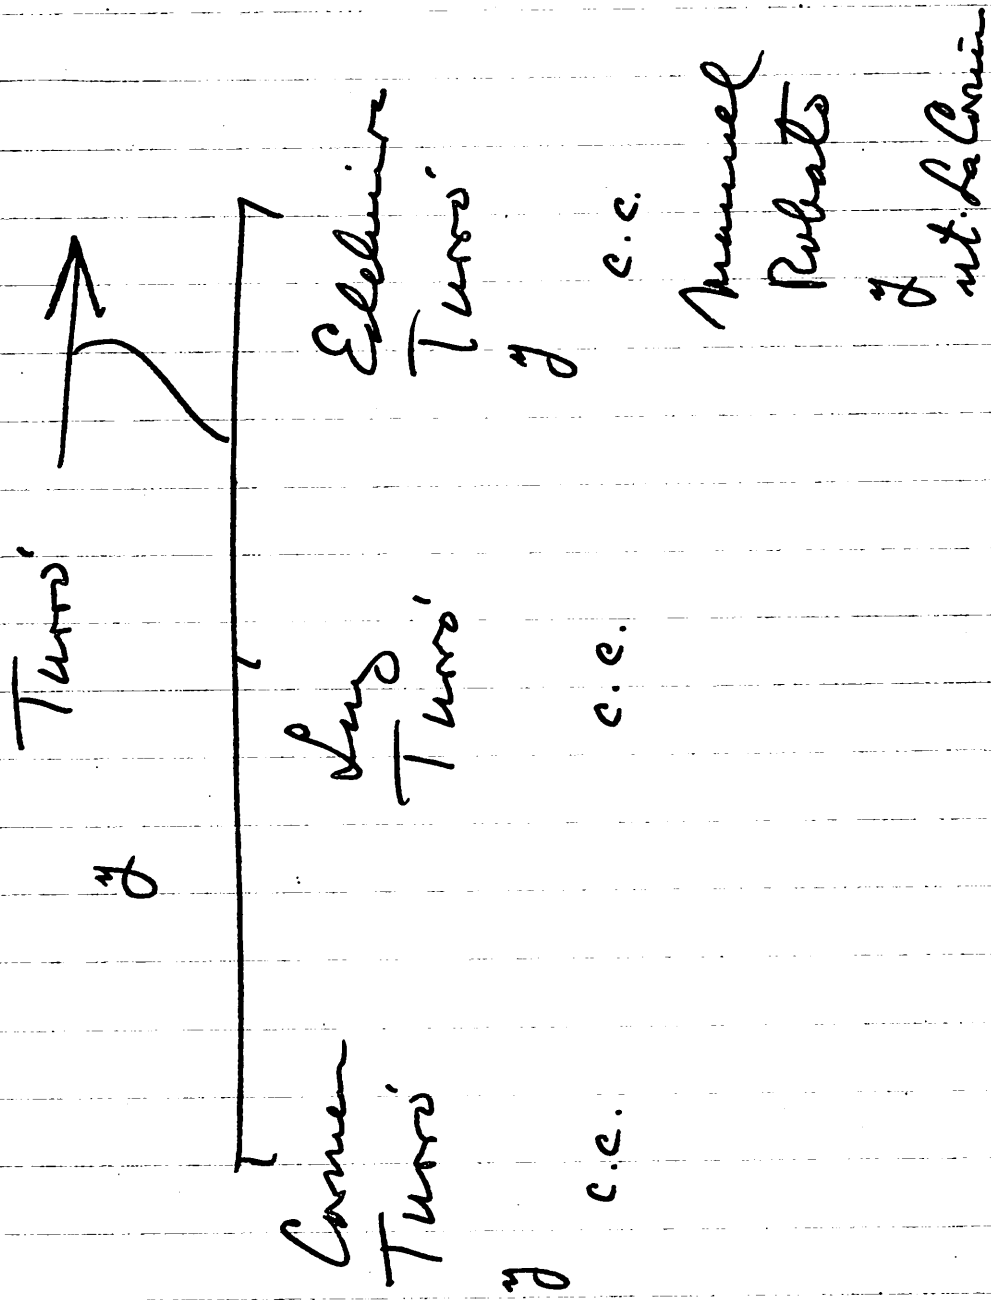 Turró
y
Carmen
Turró
y
c.c.
Luz
Turró
c.c.
Edelmira
Turró
y
c.c.
Manuel
Robato
y
nt. La Coruña